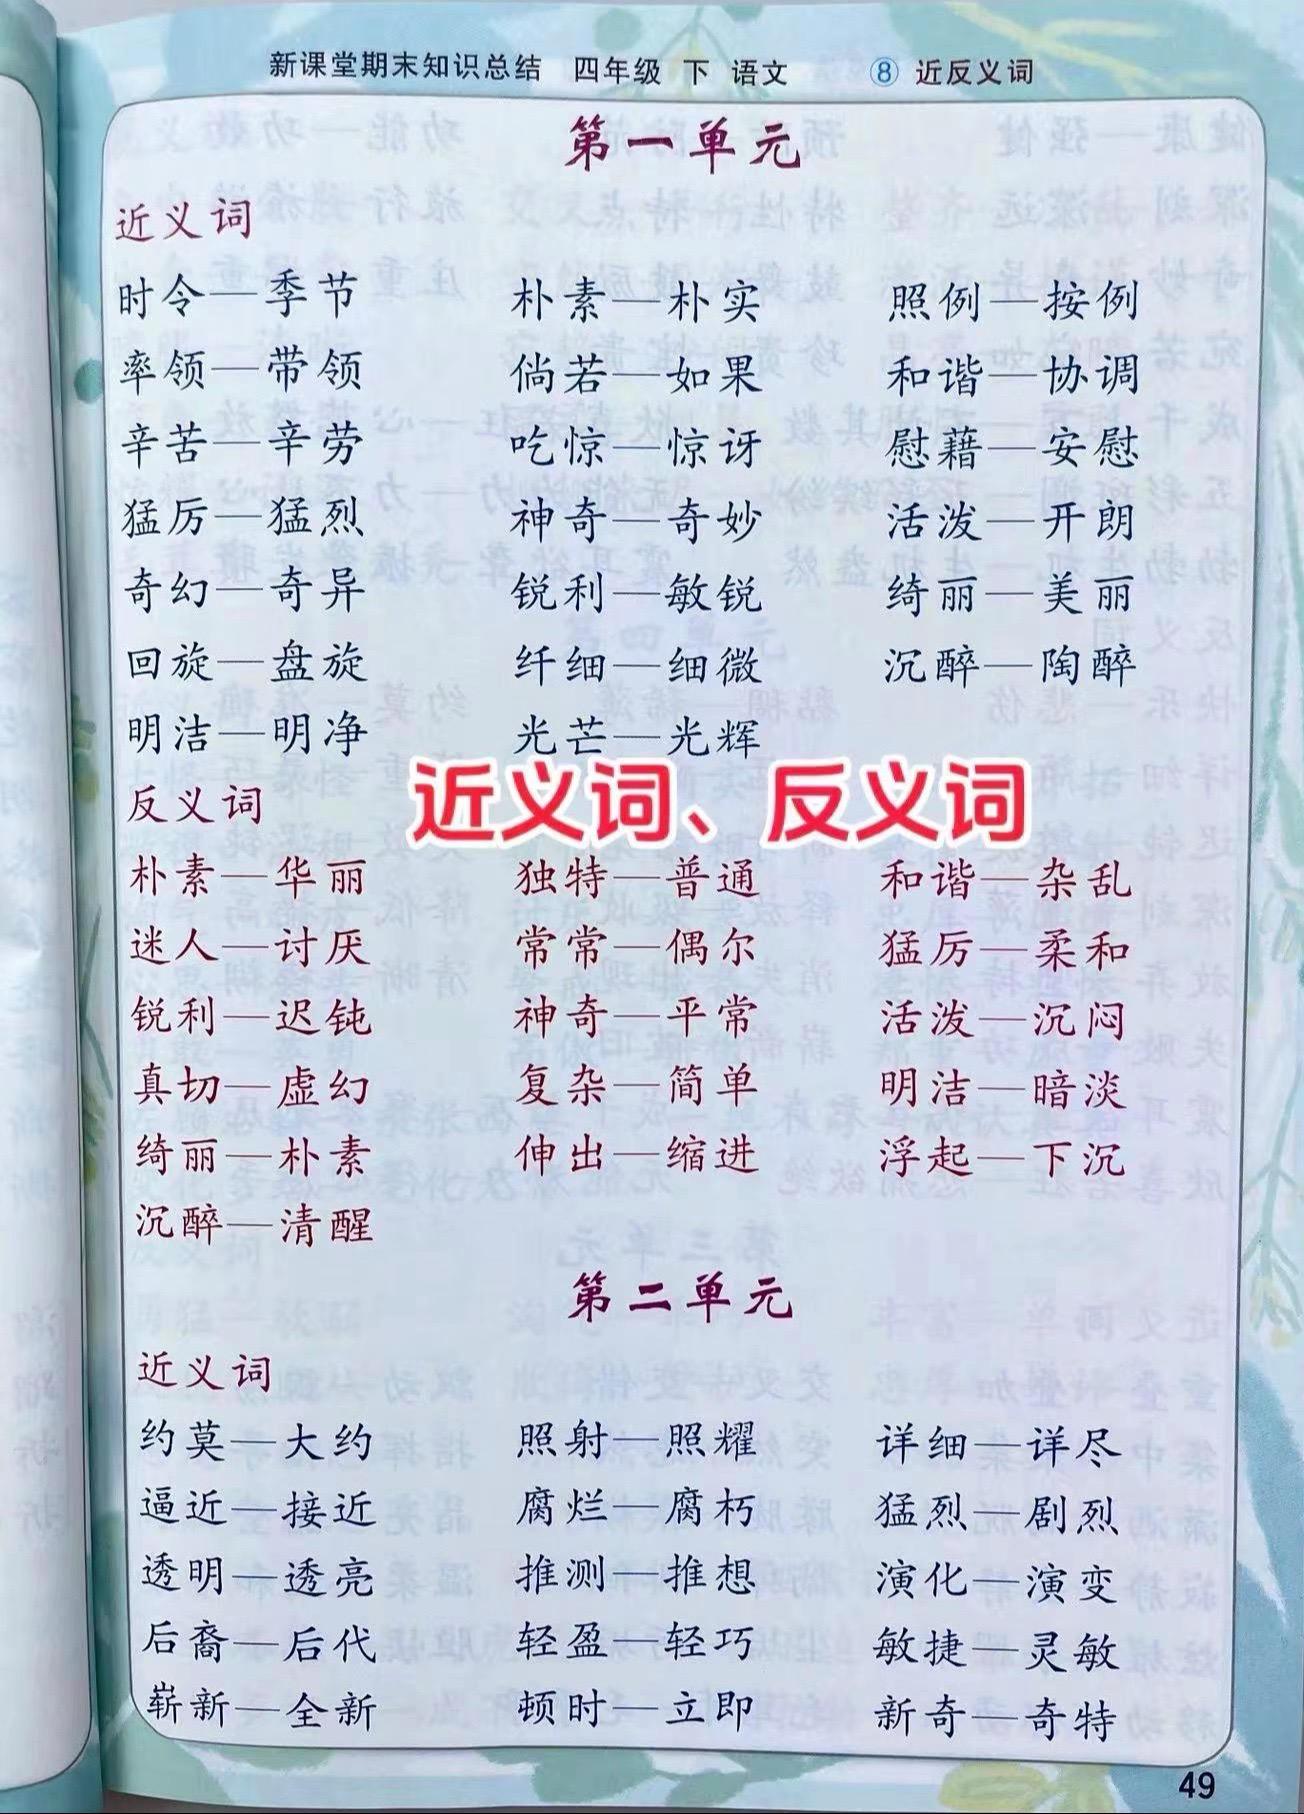 新课堂期末知识总结 四年级 下 语文 ⑧ 近反义词
第一单元
近义词
时令—季节 朴素—朴实 照例—按例
率领—带领 倘若—如果 和谐—协调
辛苦—辛劳 吃惊—惊讶 慰藉—安慰
猛厉—猛烈 神奇—奇妙 活泼—开朗
奇幻—奇异 锐利—敏锐 绮丽—美丽
回旋—盘旋 纤细—细微 沉醉—陶醉
明洁—明净 光芒—光辉
近义词、反义词
反义词
朴素—华丽 独特—普通 和谐—杂乱
迷人—讨厌 常常—偶尔 猛厉—柔和
锐利—迟钝 神奇—平常 活泼—沉闷
真切—虚幻 复杂—简单 明洁—暗淡
绮丽—朴素 伸出—缩进 浮起—下沉
沉醉—清醒
第二单元
近义词
约莫—大约 照射—照耀 详细—详尽
逼近—接近 腐烂—腐朽 猛烈—剧烈
透明—透亮 推测—推想 演化—演变
后裔—后代 轻盈—轻巧 敏捷—灵敏
崭新—全新 顿时—立即 新奇—奇特
49